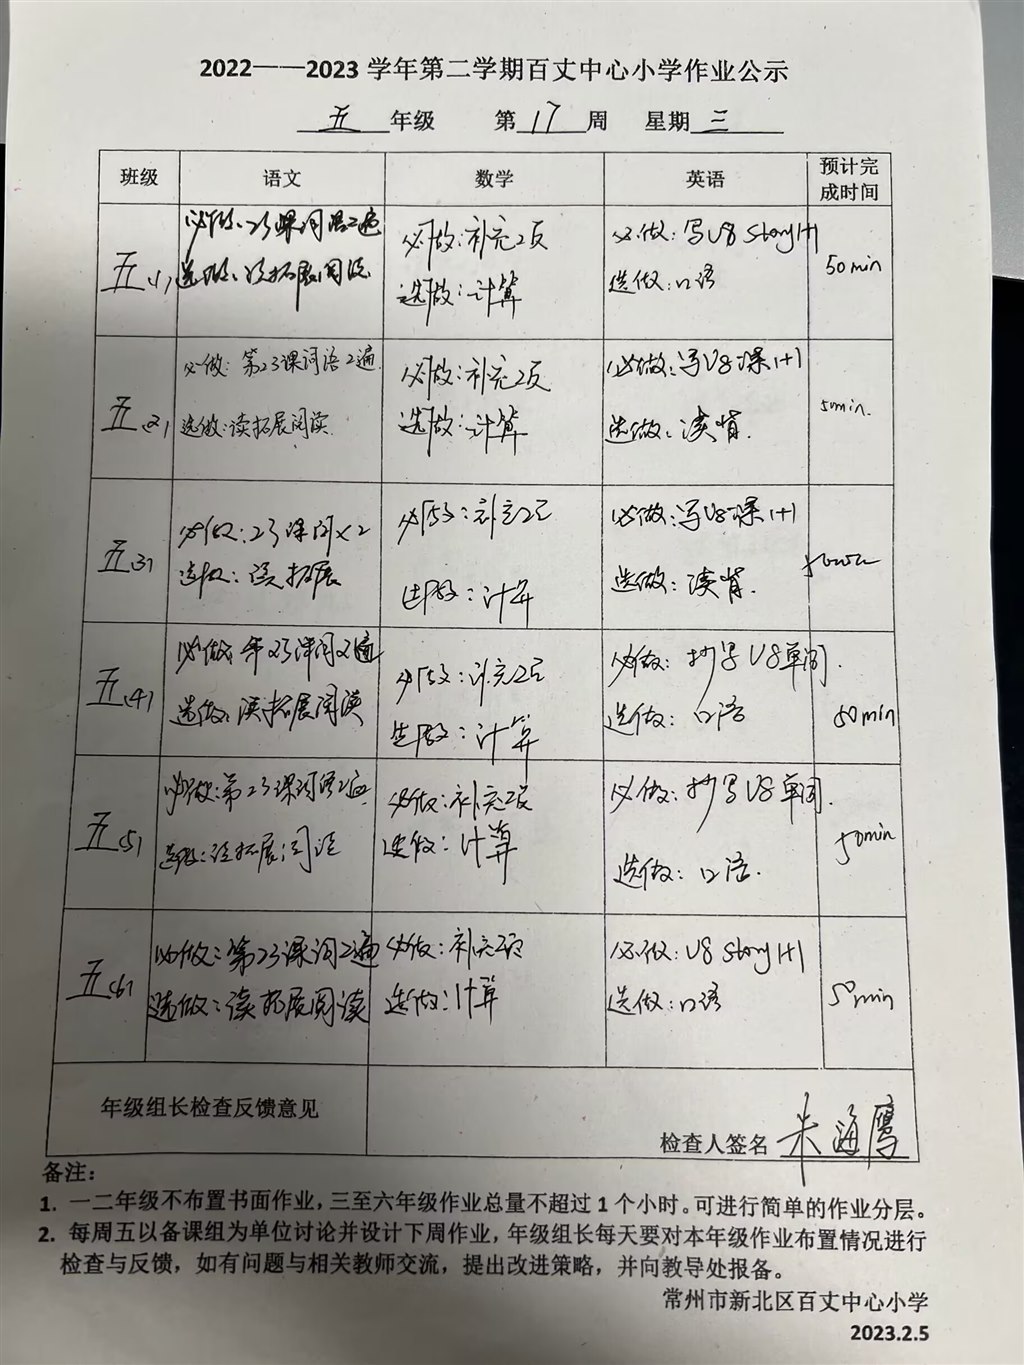 2022——2023 学年第二学期百丈中心小学作业公示
五 年级 第 17 周 星期 三
班级 语文 数学 英语 预计完成时间
五(1)
必做：23课词语2遍
选做：读拓展阅读
必做：补充2页
选做：计算
必做：写U8 Story 1+1
选做：口语
50min
五(2)
必做：第23课词语2遍
选做：读拓展阅读
必做：补充2页
选做：计算
必做：写U8课1+1
选做：读背.
5min.
五(3)
必做：23课词×2
选做：读拓展
必做：补充2页
选做：计算
必做：写U8课1+1
选做：读背.
五(4)
必做：第23课词2遍
选做：读拓展阅读
必做：补充2页
选做：计算
必做：抄写U8单词.
选做：口语
50min
五(5)
必做：第23课词语2遍
选做：读拓展阅读
必做：补充2页
选做：计算
必做：抄写U8单词.
选做：口语.
50min
五(6)
必做：第23课词2遍
选做：读拓展阅读
必做：补充2页
选做：计算
必做：U8 Story 1+1
选做：口语
50min
年级组长检查反馈意见
检查人签名 朱海鹰
备注：
1. 一二年级不布置书面作业，三至六年级作业总量不超过 1 个小时。可进行简单的作业分层。
2. 每周五以备课组为单位讨论并设计下周作业，年级组长每天要对本年级作业布置情况进行
检查与反馈，如有问题与相关教师交流，提出改进策略，并向教导处报备。
常州市新北区百丈中心小学
2023.2.5